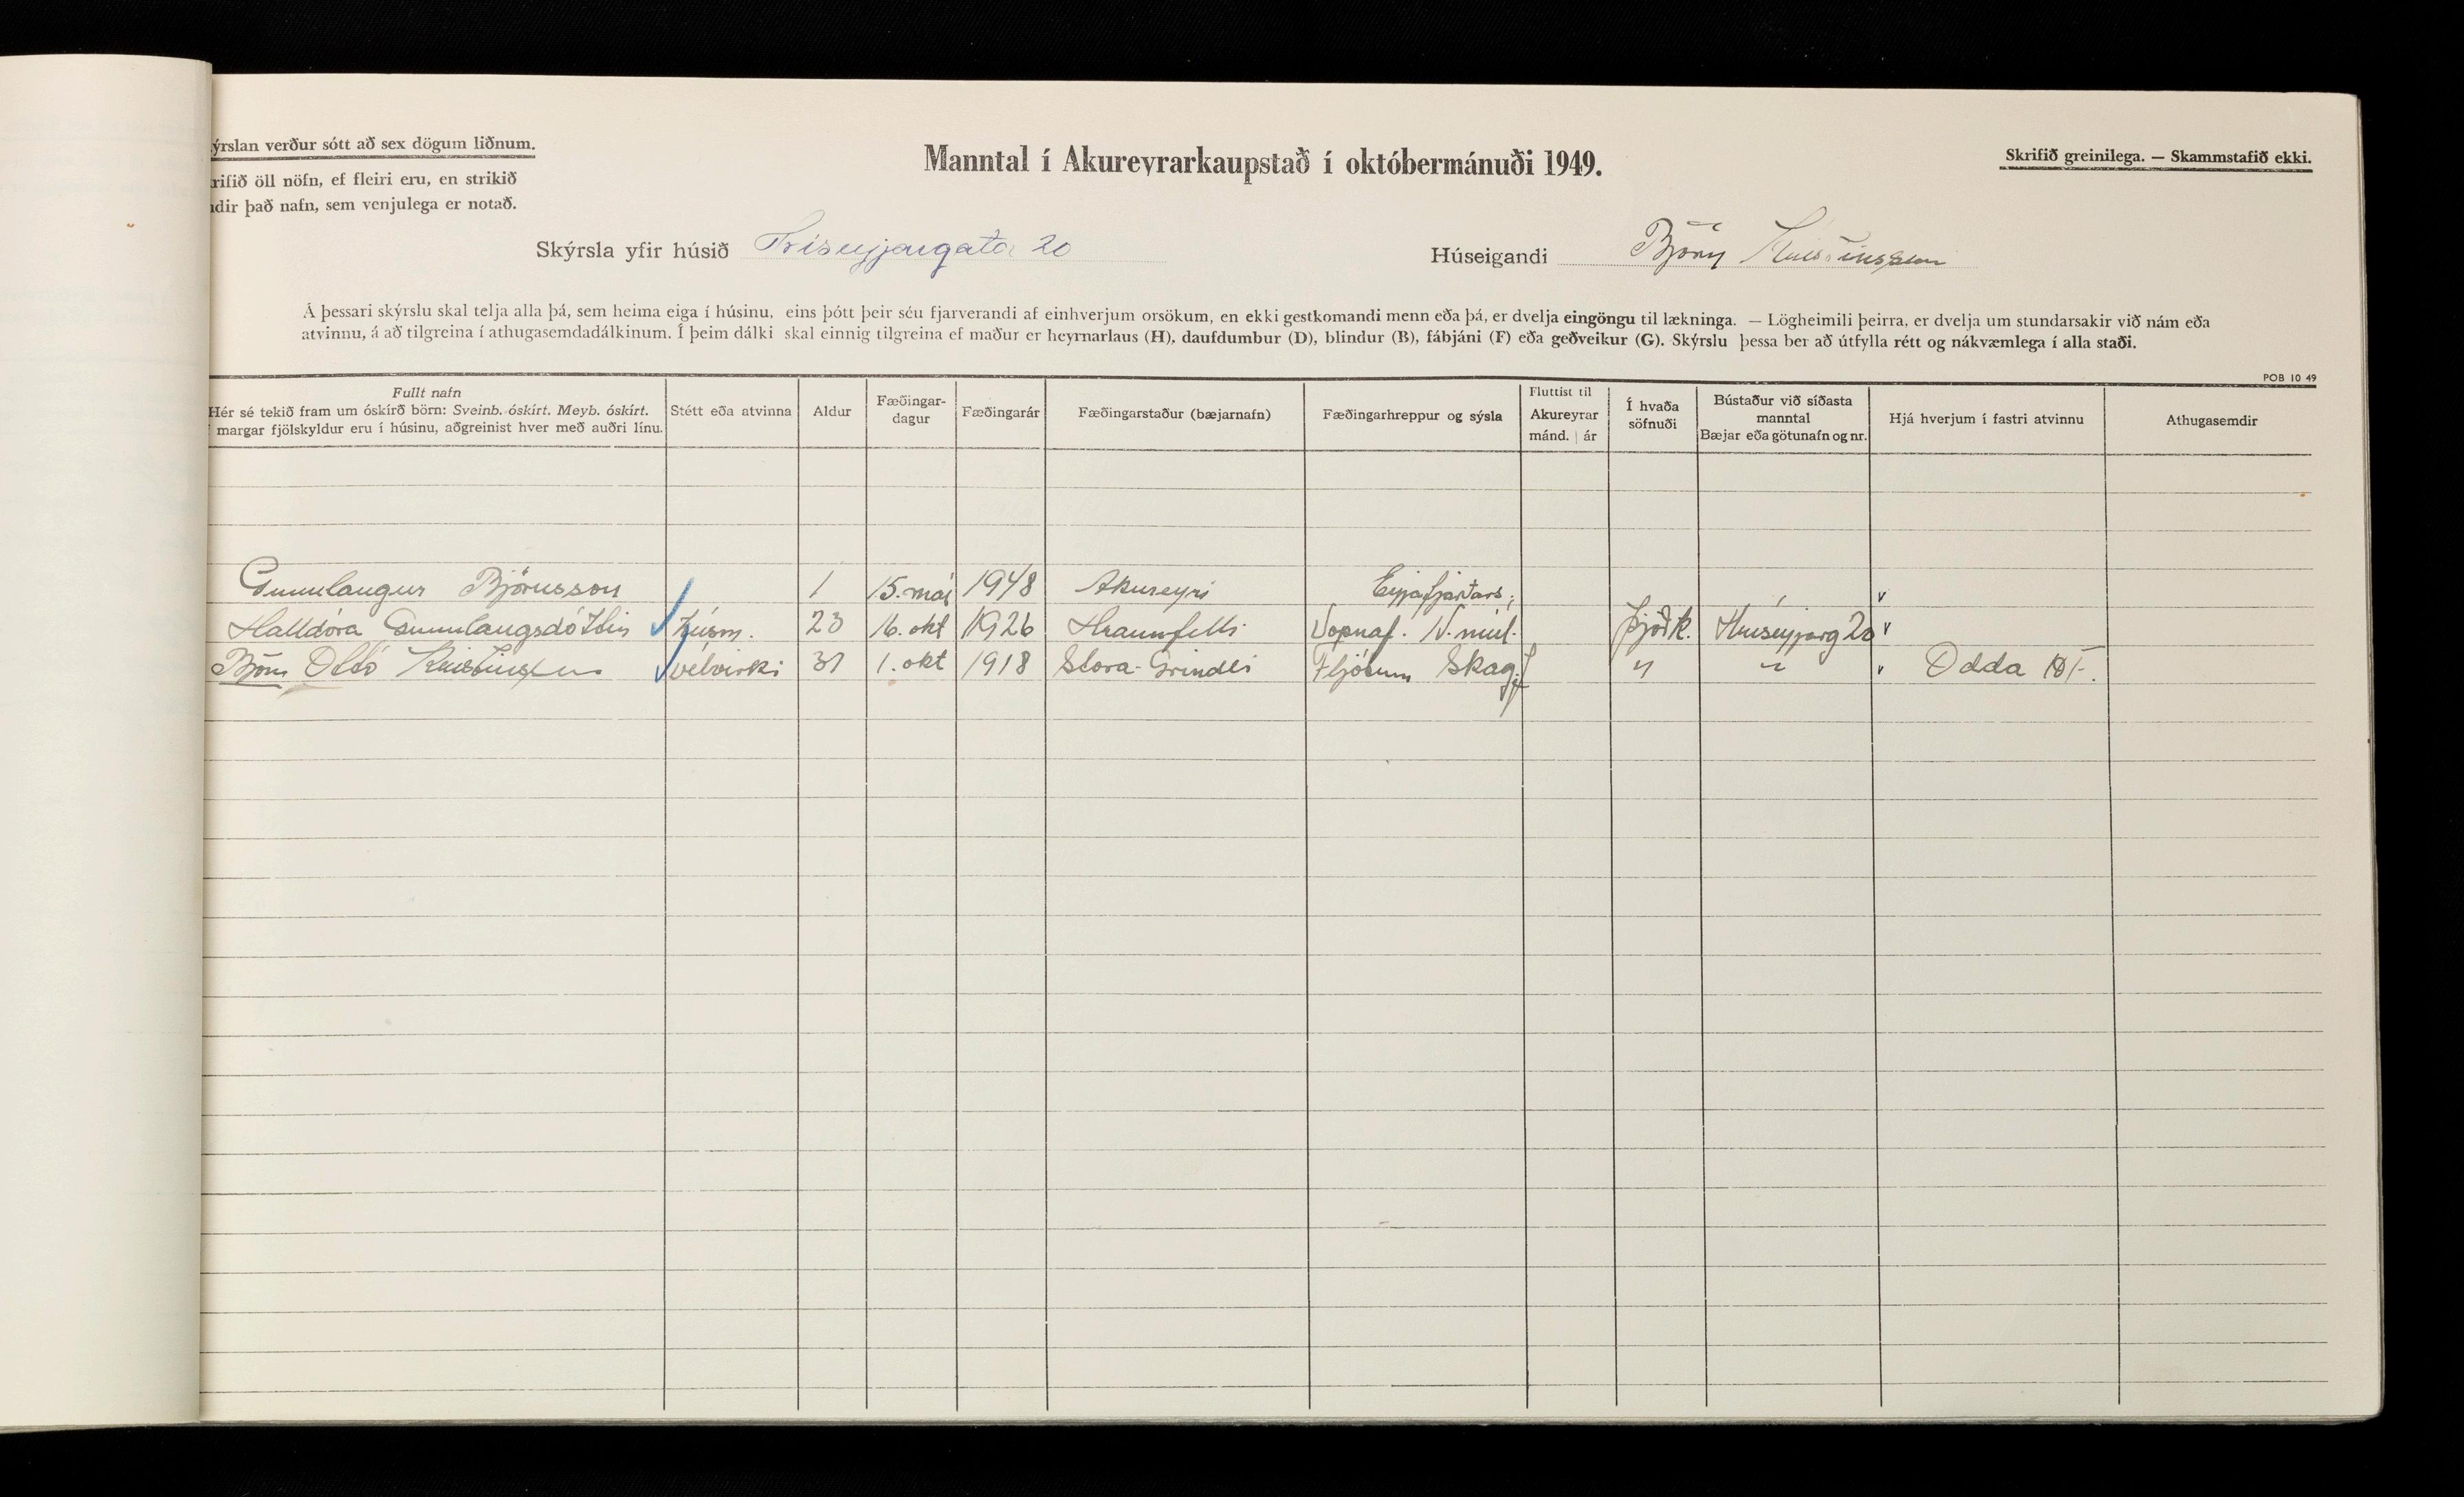 ýrslan verður sótt að sex dögum liðnum.
rifið öll nöfn, ef fleiri eru, en strikið
dir það nafn, sem venjulega er notað.
Manntal í Akureyrarkaupstað í októbermánuði 1949.
Skrifið greinilega. — Skammstafið ekki.
Skýrsla yfir húsið Hríseyjargata 20
Húseigandi Björn Kristinsson
Á þessari skýrslu skal telja alla þá, sem heima eiga í húsinu, eins þótt þeir séu fjarverandi af einhverjum orsökum, en ekki gestkomandi menn eða þá, er dvelja eingöngu til lækninga. — Lögheimili þeirra, er dvelja um stundarsakir við nám eða
atvinnu, á að tilgreina í athugasemdadálkinum. Í þeim dálki skal einnig tilgreina ef maður er heyrnarlaus (H), daufdumbur (D), blindur (B), fábjáni (F) eða geðveikur (G). Skýrslu þessa ber að útfylla rétt og nákvæmlega í alla staði.
POB 10 49
Fullt nafn
Hér sé tekið fram um óskírð börn: Sveinb. óskírt. Meyb. óskírt.
margar fjölskyldur eru í húsinu, aðgreinist hver með auðri línu.
Stétt eða atvinna
Aldur
Fæðingar-
dagur
Fæðingarár
Fæðingarstaður (bæjarnafn)
Fæðingarhreppur og sýsla
Fluttist til
Akureyrar
mánd. | ár
Í hvaða
söfnuði
Bústaður við síðasta
manntal
Bæjar eða götunafn og nr.
Hjá hverjum í fastri atvinnu
Athugasemdir
Gunnlaugur Björnsson 1 15. maí 1948 Akureyri Eyjafjarðars;
Halldóra Gunnlaugsdóttir húsm. 23 16. okt 1926 Hraunfelli Vopnaf. N. múl. þjóðk. Hríseyjarg 20
Björn Ottó Kristinsson vélvirki 31 1. okt 1918 Stora-Grindli Fljótum Skagf " " Odda